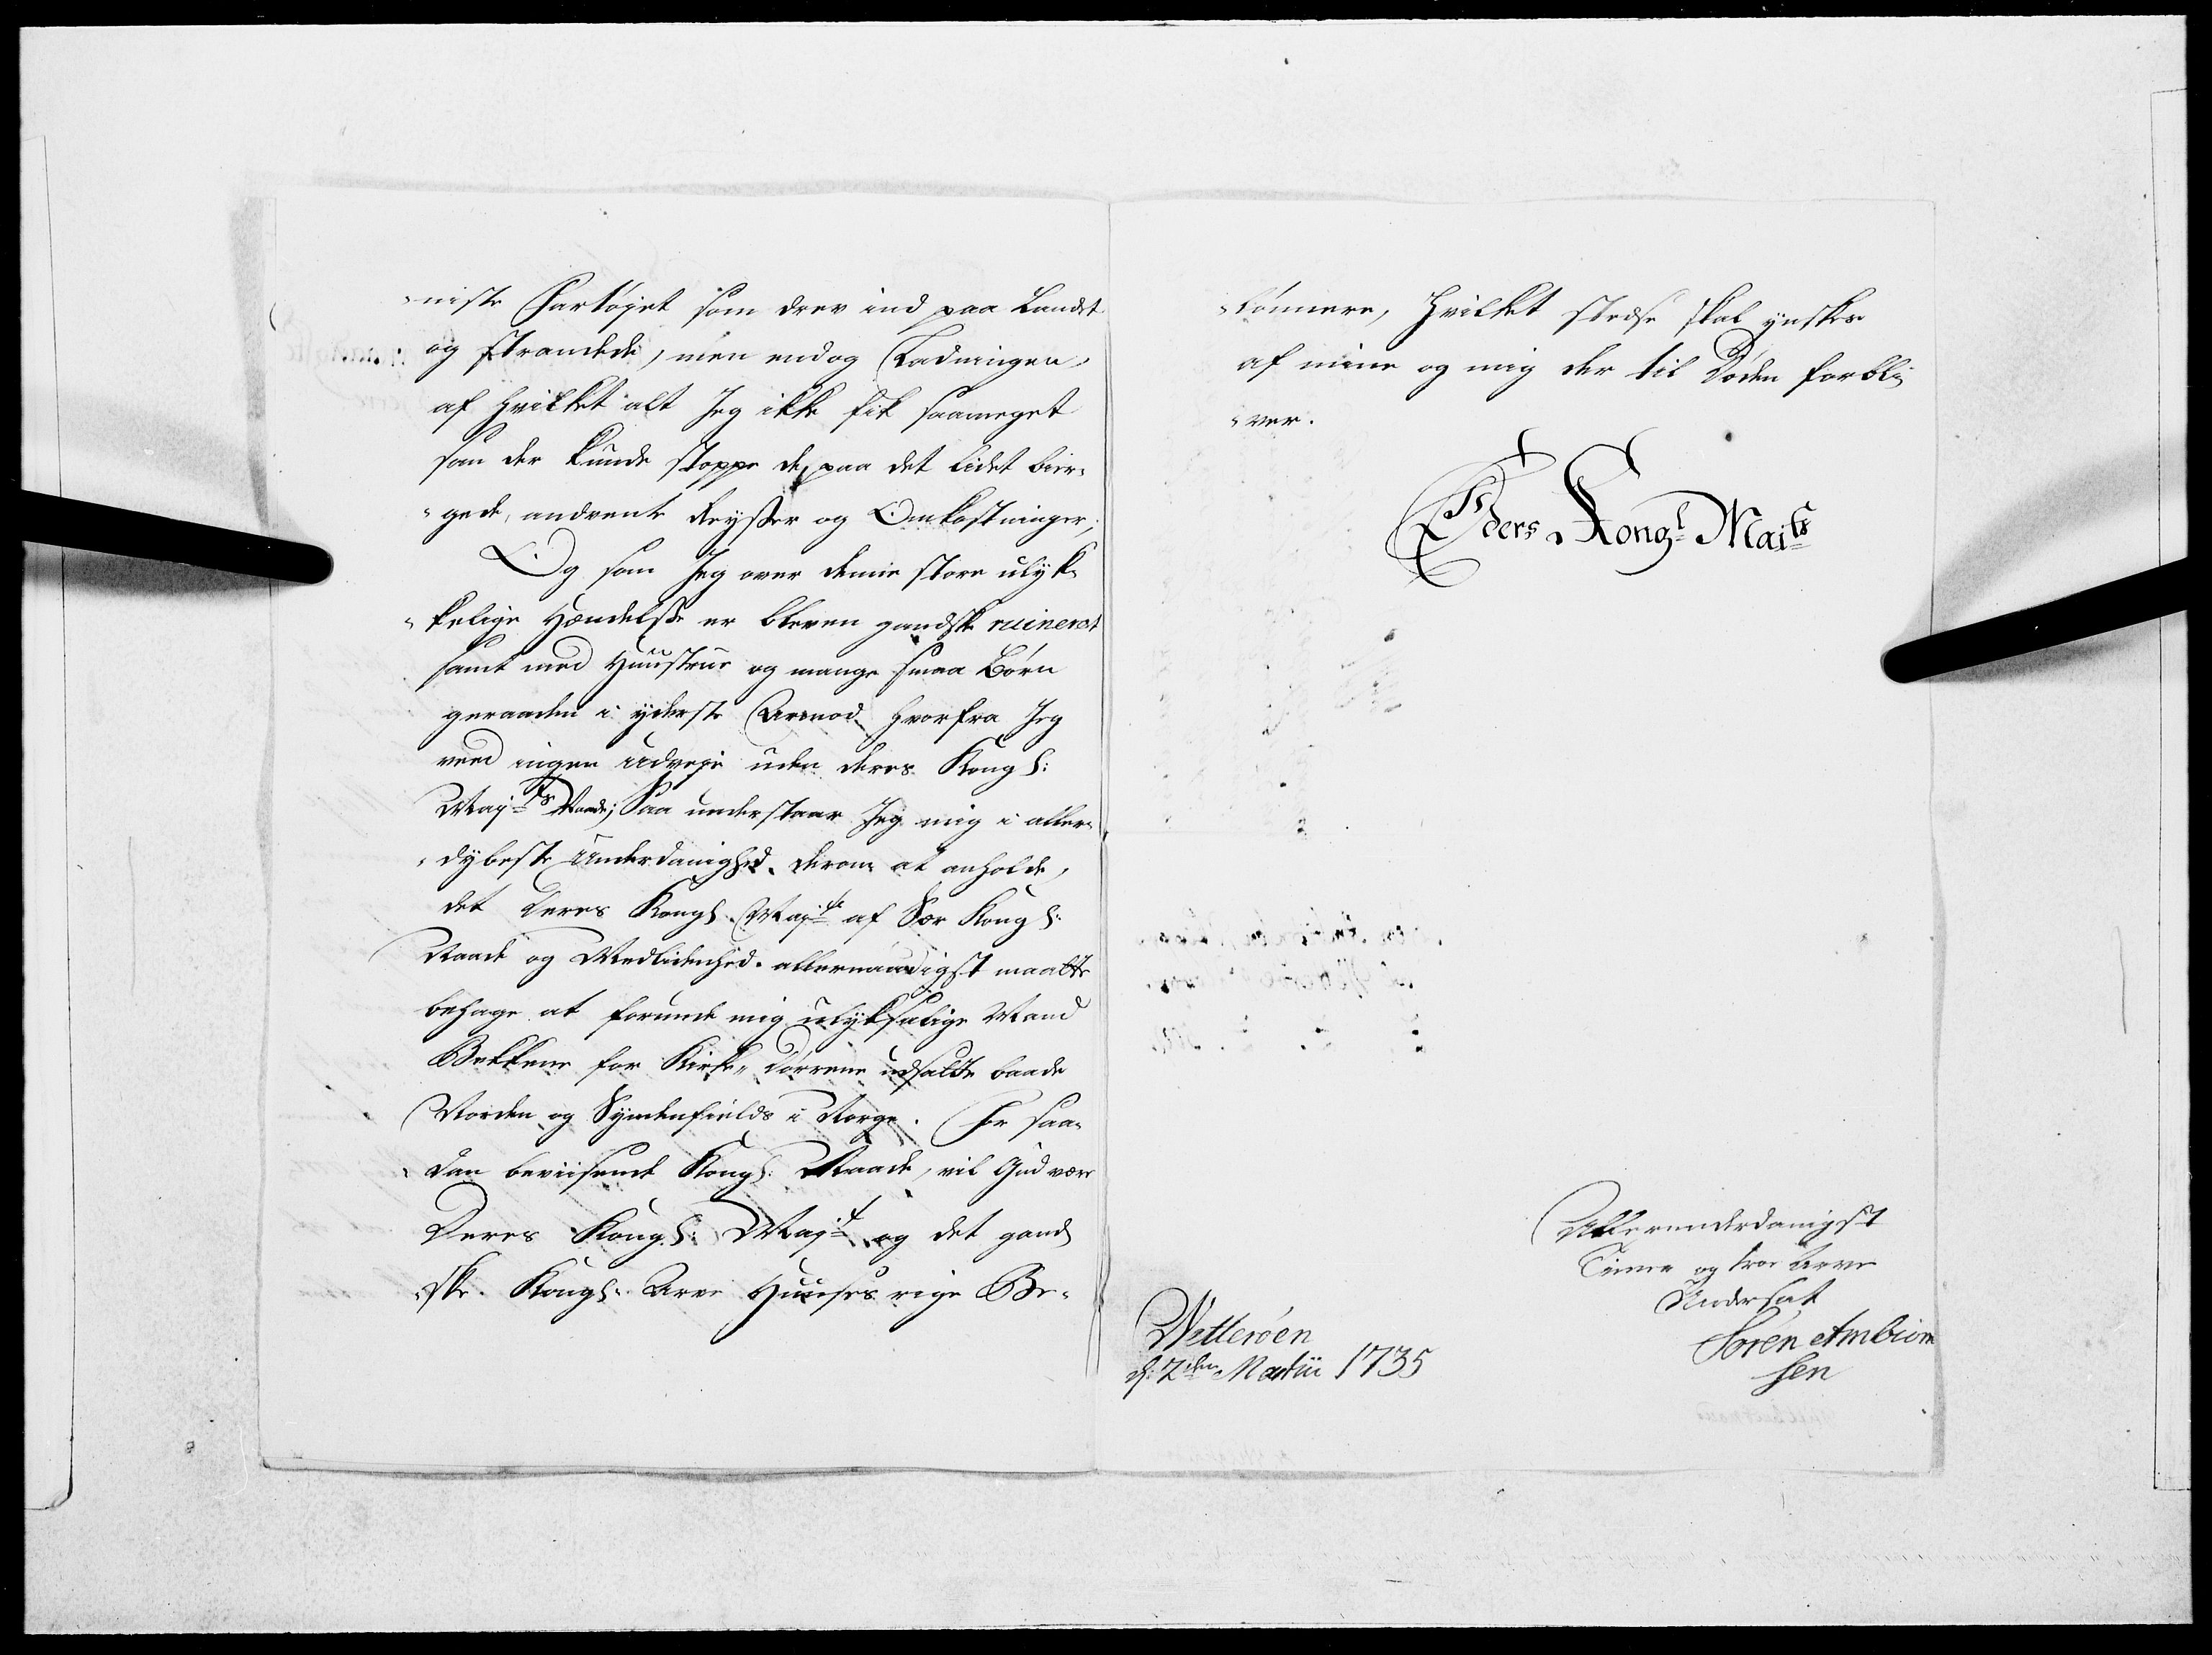 -niste Fartøjet som drev ind paa Landet
og strandede, men endog Ladningen,
af hvilket alt Jeg ikke fik saameget
som der kunde stoppe de paa det lidet bier-
-gede, andvente Reyßer og Omkostninger;
Og som Jeg over denne store ulyk-
-kelige Hændelße er bleven gandske ruineret
samt med Huustrue og mange smaa Børn
geraaden i yderste Armod hvorfra Jeg
veed ingen udveje uden Deres Kongl:
Majts Naade; Saa understaar Jeg mig i aller-
-dybeste Underdanighed, derom at anholde,
det Deres Kongl. Majt af Sær Kongl:
Naade og Medlidenhed allernaadigst maatte
behage at forunde mig ulyksalige Mand
Bekkene for Kirke-Dørrene udsatte baade
Norden og Syndenfields i Norge. For saa-
-dan beviisende Kongl: Naade, vil Gud være
Deres Kongl: Majt og det gand-
-ske Kongl. Arve Huuses rige Be-
-lønnere, Hvilket stedse skal ynskes
af mine og mig der til Døden forbli-
-ver.
Eders Kongl Maits
Allerunderdanigst
Tienner og troe Arve
Undersat
Sören Ambiörn
sen
Wetteröen
d: 7den Martii 1735